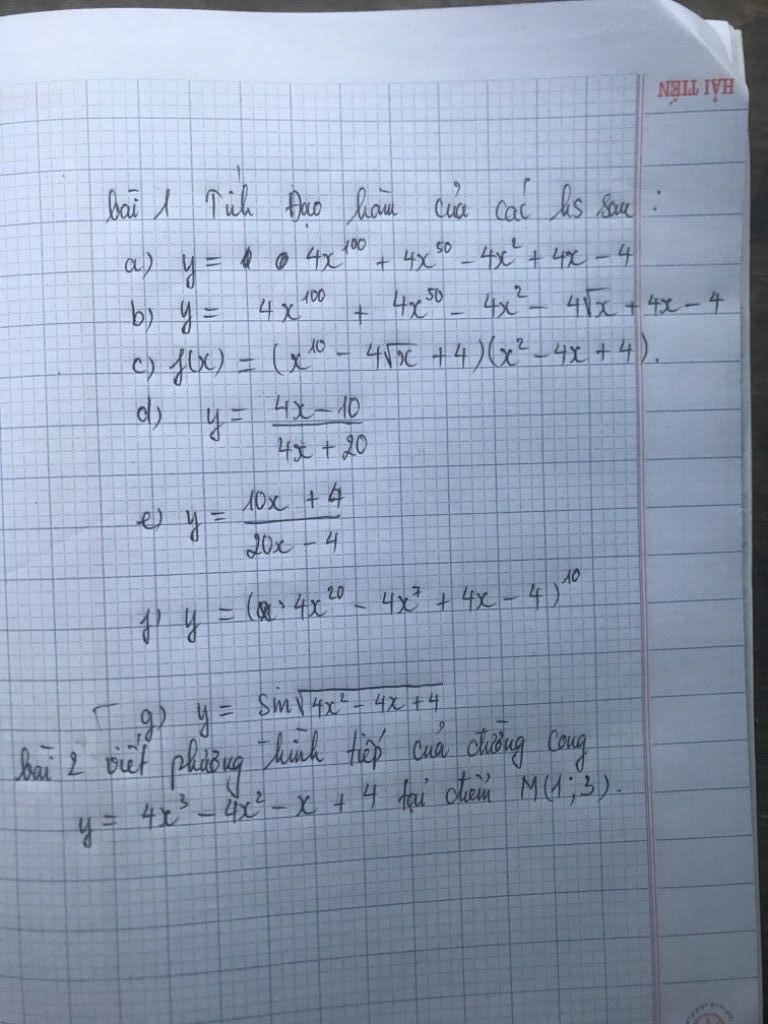 HẢI TIẾN
bài 1 Tính Đạo hàm của các hs sau :
a) y = 4x^100 + 4x^50 - 4x^2 + 4x - 4
b) y = 4x^100 + 4x^50 - 4x^2 - 4√x + 4x - 4
c) f(x) = (x^10 - 4√x + 4)(x^2 - 4x + 4).
d) y = (4x - 10)/(4x + 20)
e) y = (10x + 4)/(20x - 4)
f) y = (4x^20 - 4x^7 + 4x - 4)^10
g) y = sin√(4x^2 - 4x + 4)
bài 2 viết phương trình tiếp của đường cong
y = 4x^3 - 4x^2 - x + 4 tại điểm M(1; 3).